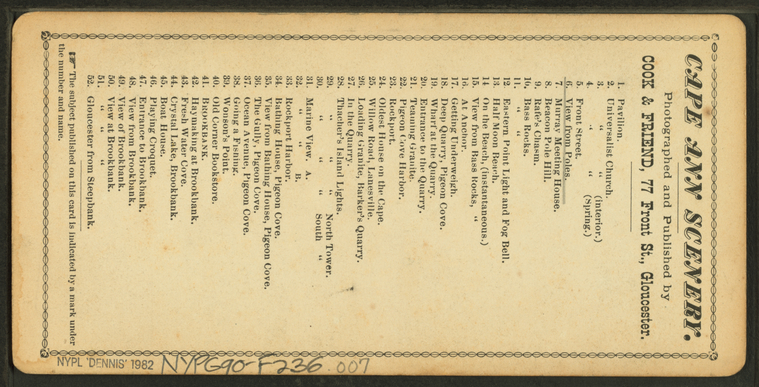 CAPE ANN SCENERY.
Photographed and Published by
COOK & FRIEND, 77 Front St., Gloucester.
1. Pavilion.
2. Universalist Church.
3. " " (interior.)
4. " " (Spring.)
5. Front Street.
6. View from Poles.
7. Murray Meeting House.
8. Beacon Pole Hill.
9. Rafe's Chasm.
10. Bass Rocks.
11. " "
12. Eastern Point Light and Fog Bell.
13. Half Moon Beach.
14. On the Beach, (instantaneous.)
15. View from Bass Rocks, "
16. At Anchor.
17. Getting Underweigh.
18. Deep Quarry, Pigeon Cove.
19. Wharf at the Quarry.
20. Entrance to the Quarry.
21. Teaming Granite.
22. Pigeon Cove Harbor.
23. Rockport.
24. Oldest House on the Cape.
25. Willow Road, Lanesville.
26. Loading Granite, Barker's Quarry.
27. In the Quarry.
28. Thacher's Island Lights.
29. " " " North Tower.
30. " " " South "
31. Marine View. A.
32. " " B.
33. Rockport Harbor.
34. Bathing House, Pigeon Cove.
35. View from Bathing House, Pigeon Cove.
36. The Gully, Pigeon Cove.
37. Ocean Avenue, Pigeon Cove.
38. Going a Fishing.
39. Wonson's Point.
40. Old Corner Bookstore.
41. BROOKBANK.
42. Haymaking at Brookbank.
43. Fresh Water Cove.
44. Crystal Lake, Brookbank.
45. Boat House.
46. Playing Croquet.
47. Entrance to Brookbank.
48. View from Brookbank.
49. View of Brookbank.
50. View at Brookbank.
51. " " "
52. Gloucester from Steepbank.
☞ The subject published on this card is indicated by a mark under
the number and name.
NYPL 'DENNIS' 1982 NYPG90-F236 007